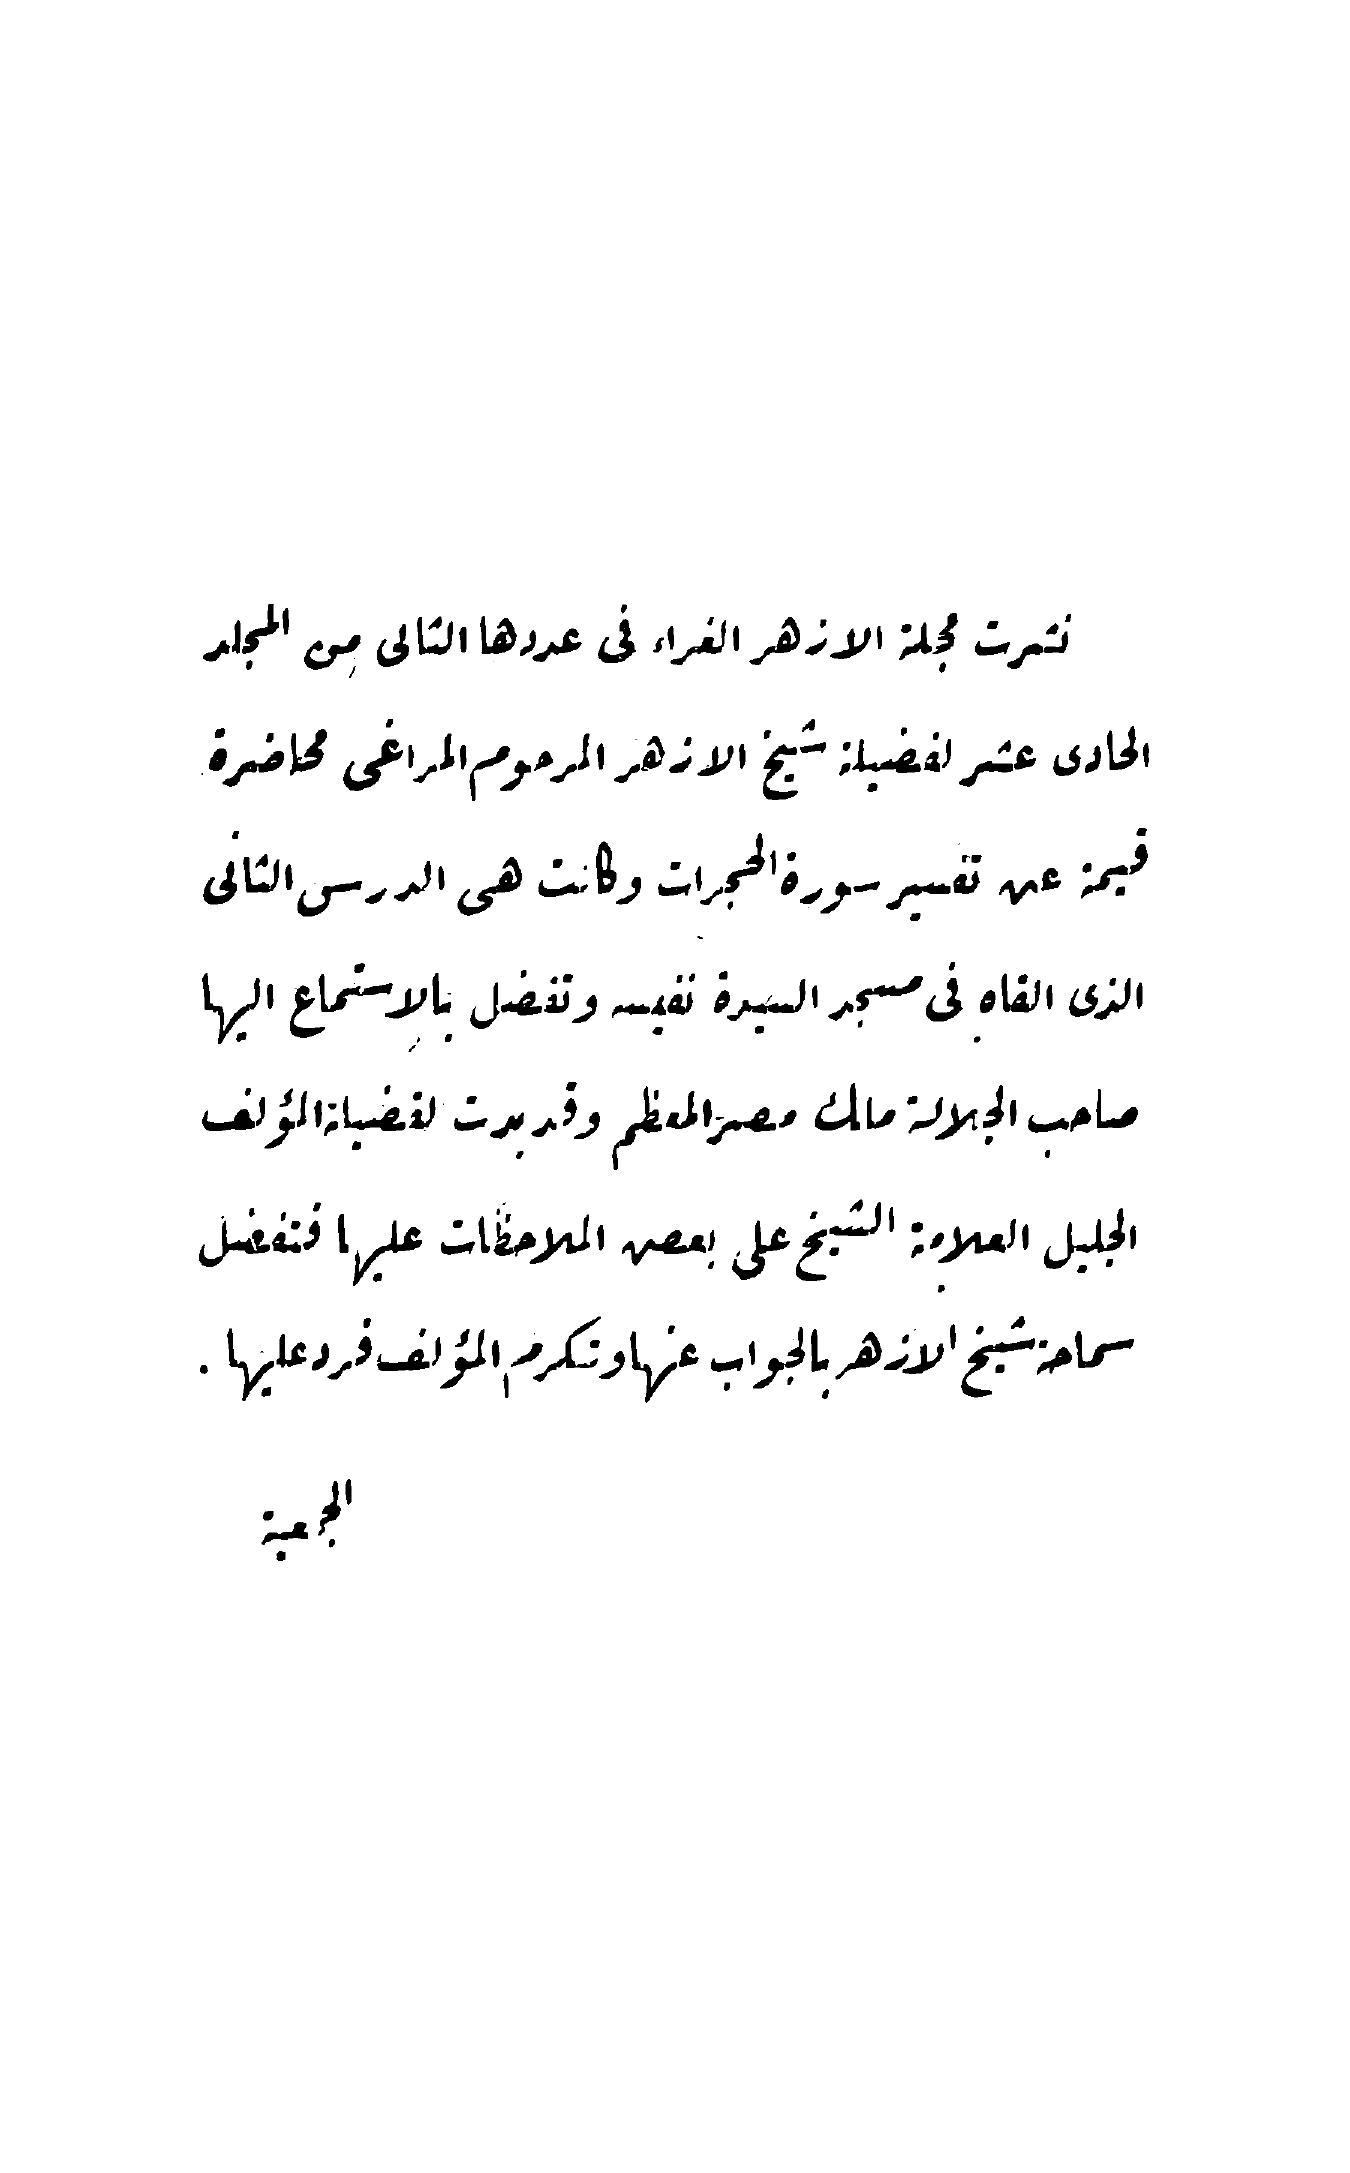 نشرت مجلة الازهر الغراء فى عددها الثانى مِن المجلد
الحادى عشر لفضيلة شيخ الازهر المرحوم المراغى محاضرة
قيمة عن تفسير سورة الحجرات وكانت هى الدرس الثانى
الذى القاه فى مسجد السيدة نفيسه وتفضل بالإستماع اليها
صاحب الجلالة مالك مصر المعظم وقد بدت لفضيلة المؤلف
الجليل العلامة الشيخ على بعض الملاحظات عليها فتفضل
سماحة شيخ الازهر بالجواب عنها وتكرم المؤلف فرد عليها .
الجمعية